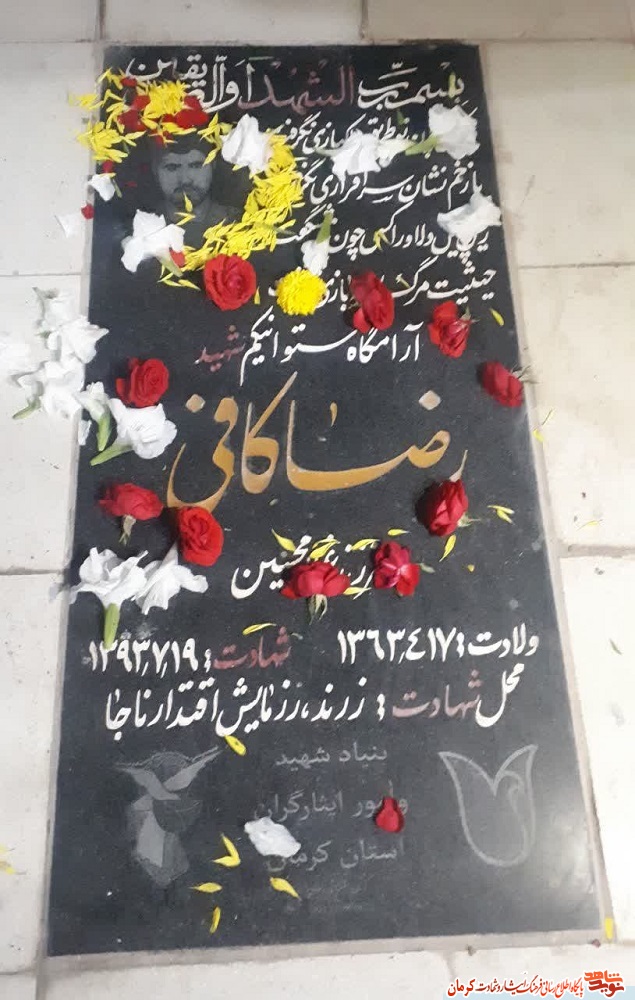 بسم رب الشهدا و الصدیقین
بازی نگرفت
با زخم نشان سرافرازی نگرفت
زین پیش دلاورا کسی چون تو شگفت
حیثیت مرگ را به بازی نگرفت
آرامگاه ستوانیکم شهید
رضا کافی
فرزند محسنین
ولادت: ۱۳۶۳٫۴٫۱۷ شهادت: ۱۳۹۳٫۷٫۱۹
محل شهادت: زرند، رزمایش اقتدار ناجا
بنیاد شهید
و امور ایثارگران
استان کرمان
نوید شاهد
پایگاه اطلاع رسانی فرهنگ ایثار و شهادت کرمان